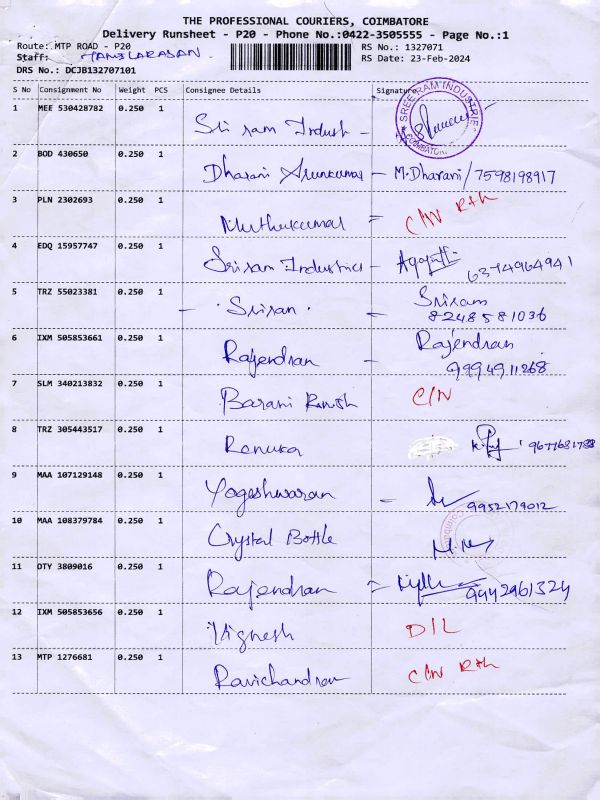 THE PROFESSIONAL COURIERS, COIMBATORE
Delivery Runsheet - P20 - Phone No.:0422-3505555 - Page No.:1
Route: MTP ROAD - P20 RS No.: 1327071
Staff: RS Date: 23-Feb-2024
DRS No.: DCJB132707101
S No Consignment No Weight PCS Consignee Details Signature
1 MEE 530428782 0.250 1 Sri ram Indust - SREE RAM INDUSTRIE COIMBATORE
2 BOD 430650 0.250 1 Dharani Arunkumar - M.Dharani/7598198917
3 PLN 2302693 0.250 1 Muthukumar = C/N Rth
4 EDQ 15957747 0.250 1 Sriram Industries - 6374964941
5 TRZ 55023381 0.250 1 - Sriram. - Sriram
8248581036
6 IXM 505853661 0.250 1 Rajendran - Rajendran
9994911268
7 SLM 340213832 0.250 1 Barani C/N
8 TRZ 305443517 0.250 1 Renuka 9677681788
9 MAA 107129148 0.250 1 Yogeshwaran - 9952179012
10 MAA 108379784 0.250 1 Crystal Bottle
11 OTY 3809016 0.250 1 Rajendran = 9942961324
12 IXM 505853656 0.250 1 Vignesh D/L
13 MTP 1276681 0.250 1 Ravichandran C/N Rth